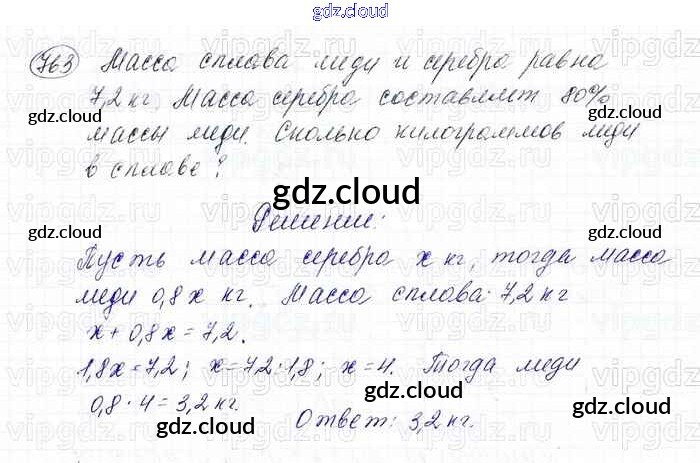 gdz.cloud
763 Масса сплава меди и серебра равна
7,2 кг. Масса серебра составляет 80%
gdz.cloud gdz.cloud
массы меди. Сколько килограммов меди
в сплаве?
gdz.cloud
Решение:
gdz.cloud gdz.cloud
Пусть масса серебра x кг, тогда масса
меди 0,8x кг. Масса сплава 7,2 кг
x + 0,8x = 7,2.
1,8x = 7,2; x = 7,2 : 1,8; x = 4. Тогда меди
gdz.cloud
0,8 · 4 = 3,2 кг.
gdz.cloud gdz.cloud
Ответ: 3,2 кг.
gdz.cloud